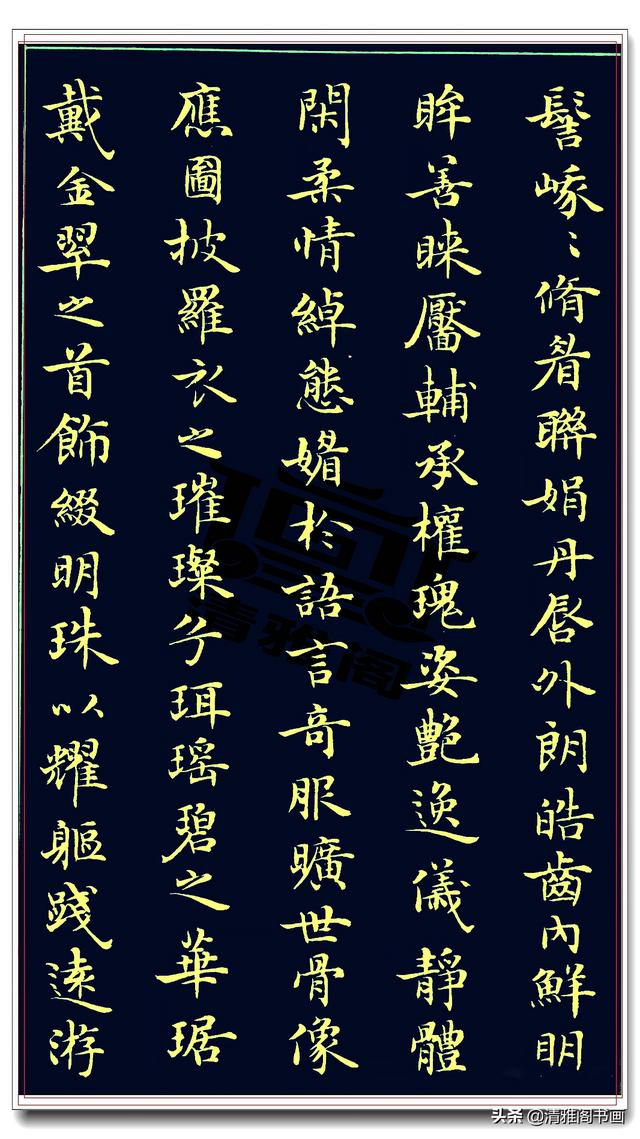 髻峨〻脩眉聯娟丹唇外朗皓齒內鮮明
眸善睞靨輔承權瑰姿艷逸儀靜體
閑柔情綽態媚於語言奇服曠世骨像
應圖披羅衣之璀璨兮珥瑤碧之華琚
戴金翠之首飾綴明珠以耀軀踐遠游
清雅阁
头条 @清雅阁书画